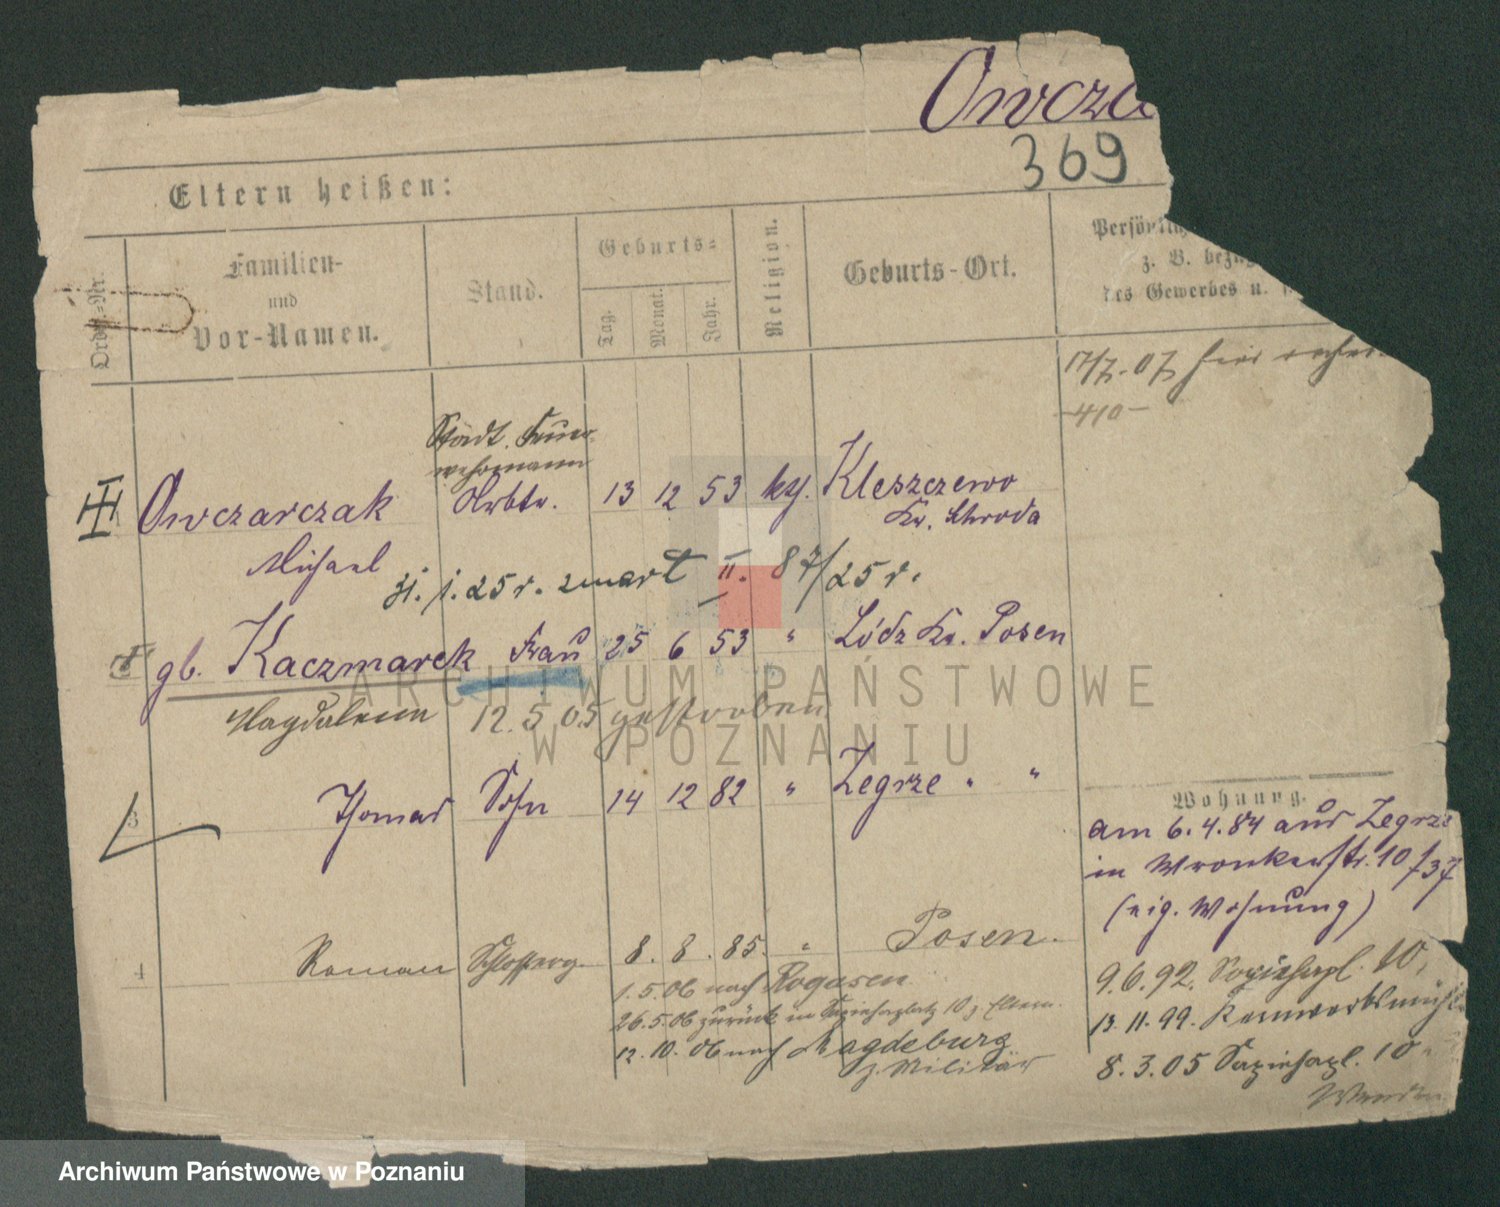 Owcza
369
Eltern heißen:
Ordn.-Nr.
Familien-
und
Vor-Namen.
Stand.
Geburts-
Tag.
Monat.
Jahr.
Religion.
Geburts-Ort.
Persönlich
z. B. bezüg
des Gewerbes u.
17/7. 07
-410-
Städt. Feuer-
wehrmann
Owczarczak Arbtr. 13 12 53 kth. Kleszczewo
Kr. Schroda
Michael
31. 1. 25 r. zmarł II. 87/25 r.
gb. Kaczmarek Frau 25 6 53 " Lódz Kr. Posen
Magdalena 12.5.05 gestorben
3 Thomas Sohn 14 12 82 " Zegrze " "
Wohnung.
am 6.4.84 aus Zegrze
in Wronkerstr. 10/37
(eig. Wohnung)
4 Roman 8. 8. 85. " Posen.
1.5.06 nach Rogasen
26.5.06 zurück in Sapiehaplatz 10 z. Eltern.
12.10.06 nach Magdeburg
z. Militär
9.6.92. Sapiehapl. 10,
13.11.99.
8.3.05 Sapiehapl. 10
ARCHIWUM PAŃSTWOWE
W POZNANIU
Archiwum Państwowe w Poznaniu